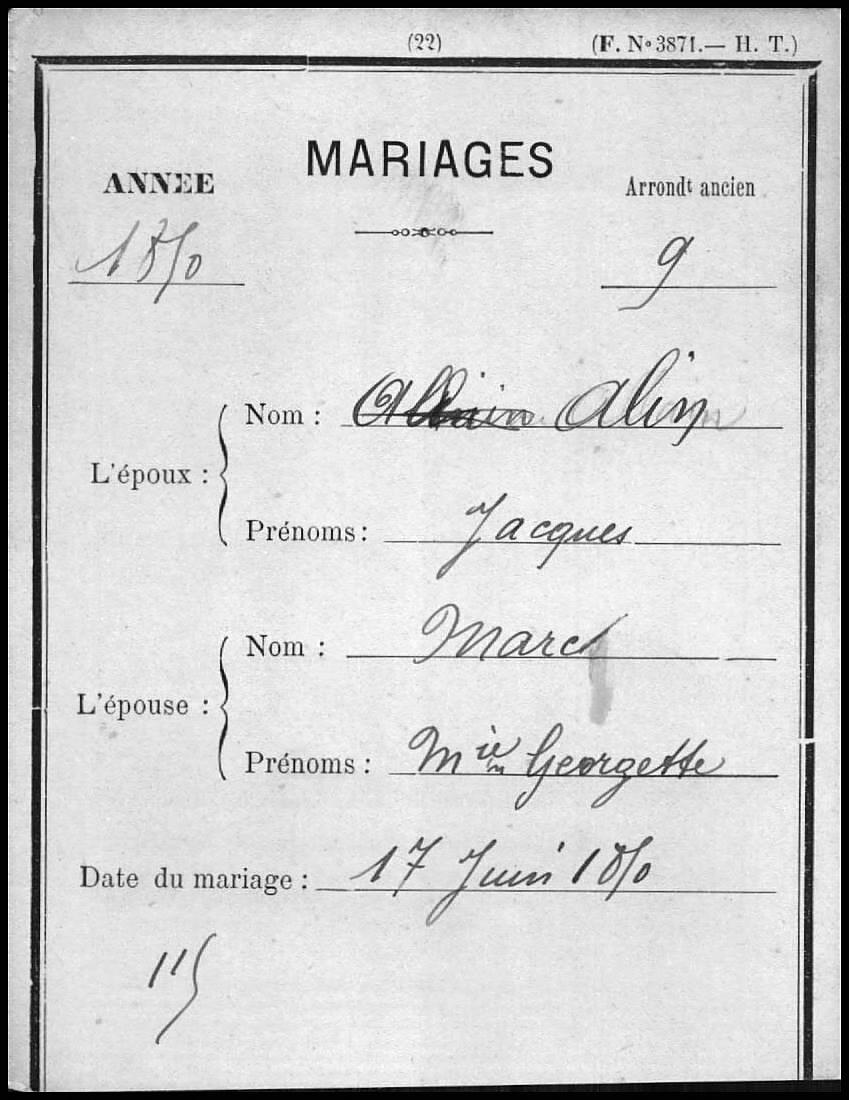 (22) (F. Nº 3871.— H. T.)
MARIAGES
ANNEE Arrondt ancien
1850 9
L'époux :
Nom : Alin
Prénoms : Jacques
L'épouse :
Nom : March
Prénoms : Mie Georgette
Date du mariage : 17 Juin 1850